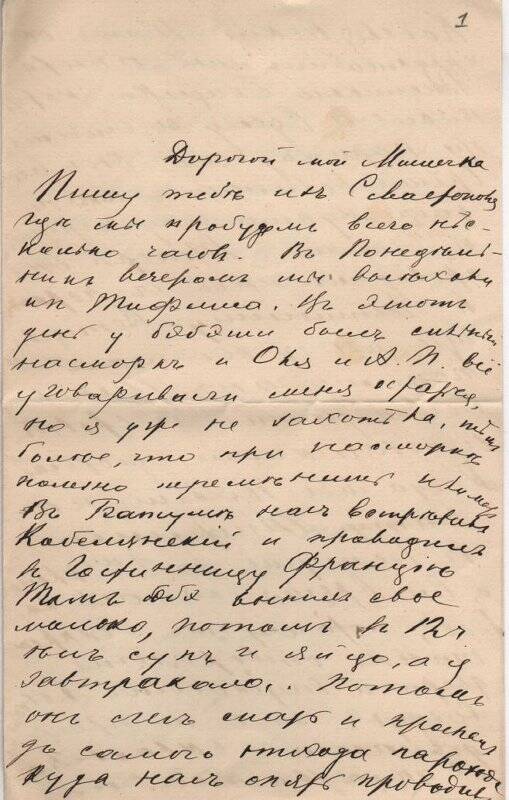 1
Дорогой мой Мишечка
Пишу тебѣ изъ Севастополя
гдѣ мы пробудемъ всего нѣс-
колько часовъ. Въ Понедѣль-
никъ вечеромъ мы выѣхали
изъ Тифлиса. Въ этотъ
день у бябяши былъ сильный
насморкъ и Оля и А. П. всё
уговаривали меня остаться,
но я уже не захотѣла, тѣмъ
болѣе, что при насморкѣ
полезно перемѣнить климатъ
Въ Батумѣ насъ встрѣтилъ
Кобелянскій и проводилъ
въ Гостинницу Франція
Тамъ бябя выпилъ свое
молоко, потомъ въ 12 ч
ѣлъ супъ и яйцо, а я
завтракала. Потомъ
онъ легъ спать и проспалъ
до самого отхода парохода
куда насъ опять проводилъ